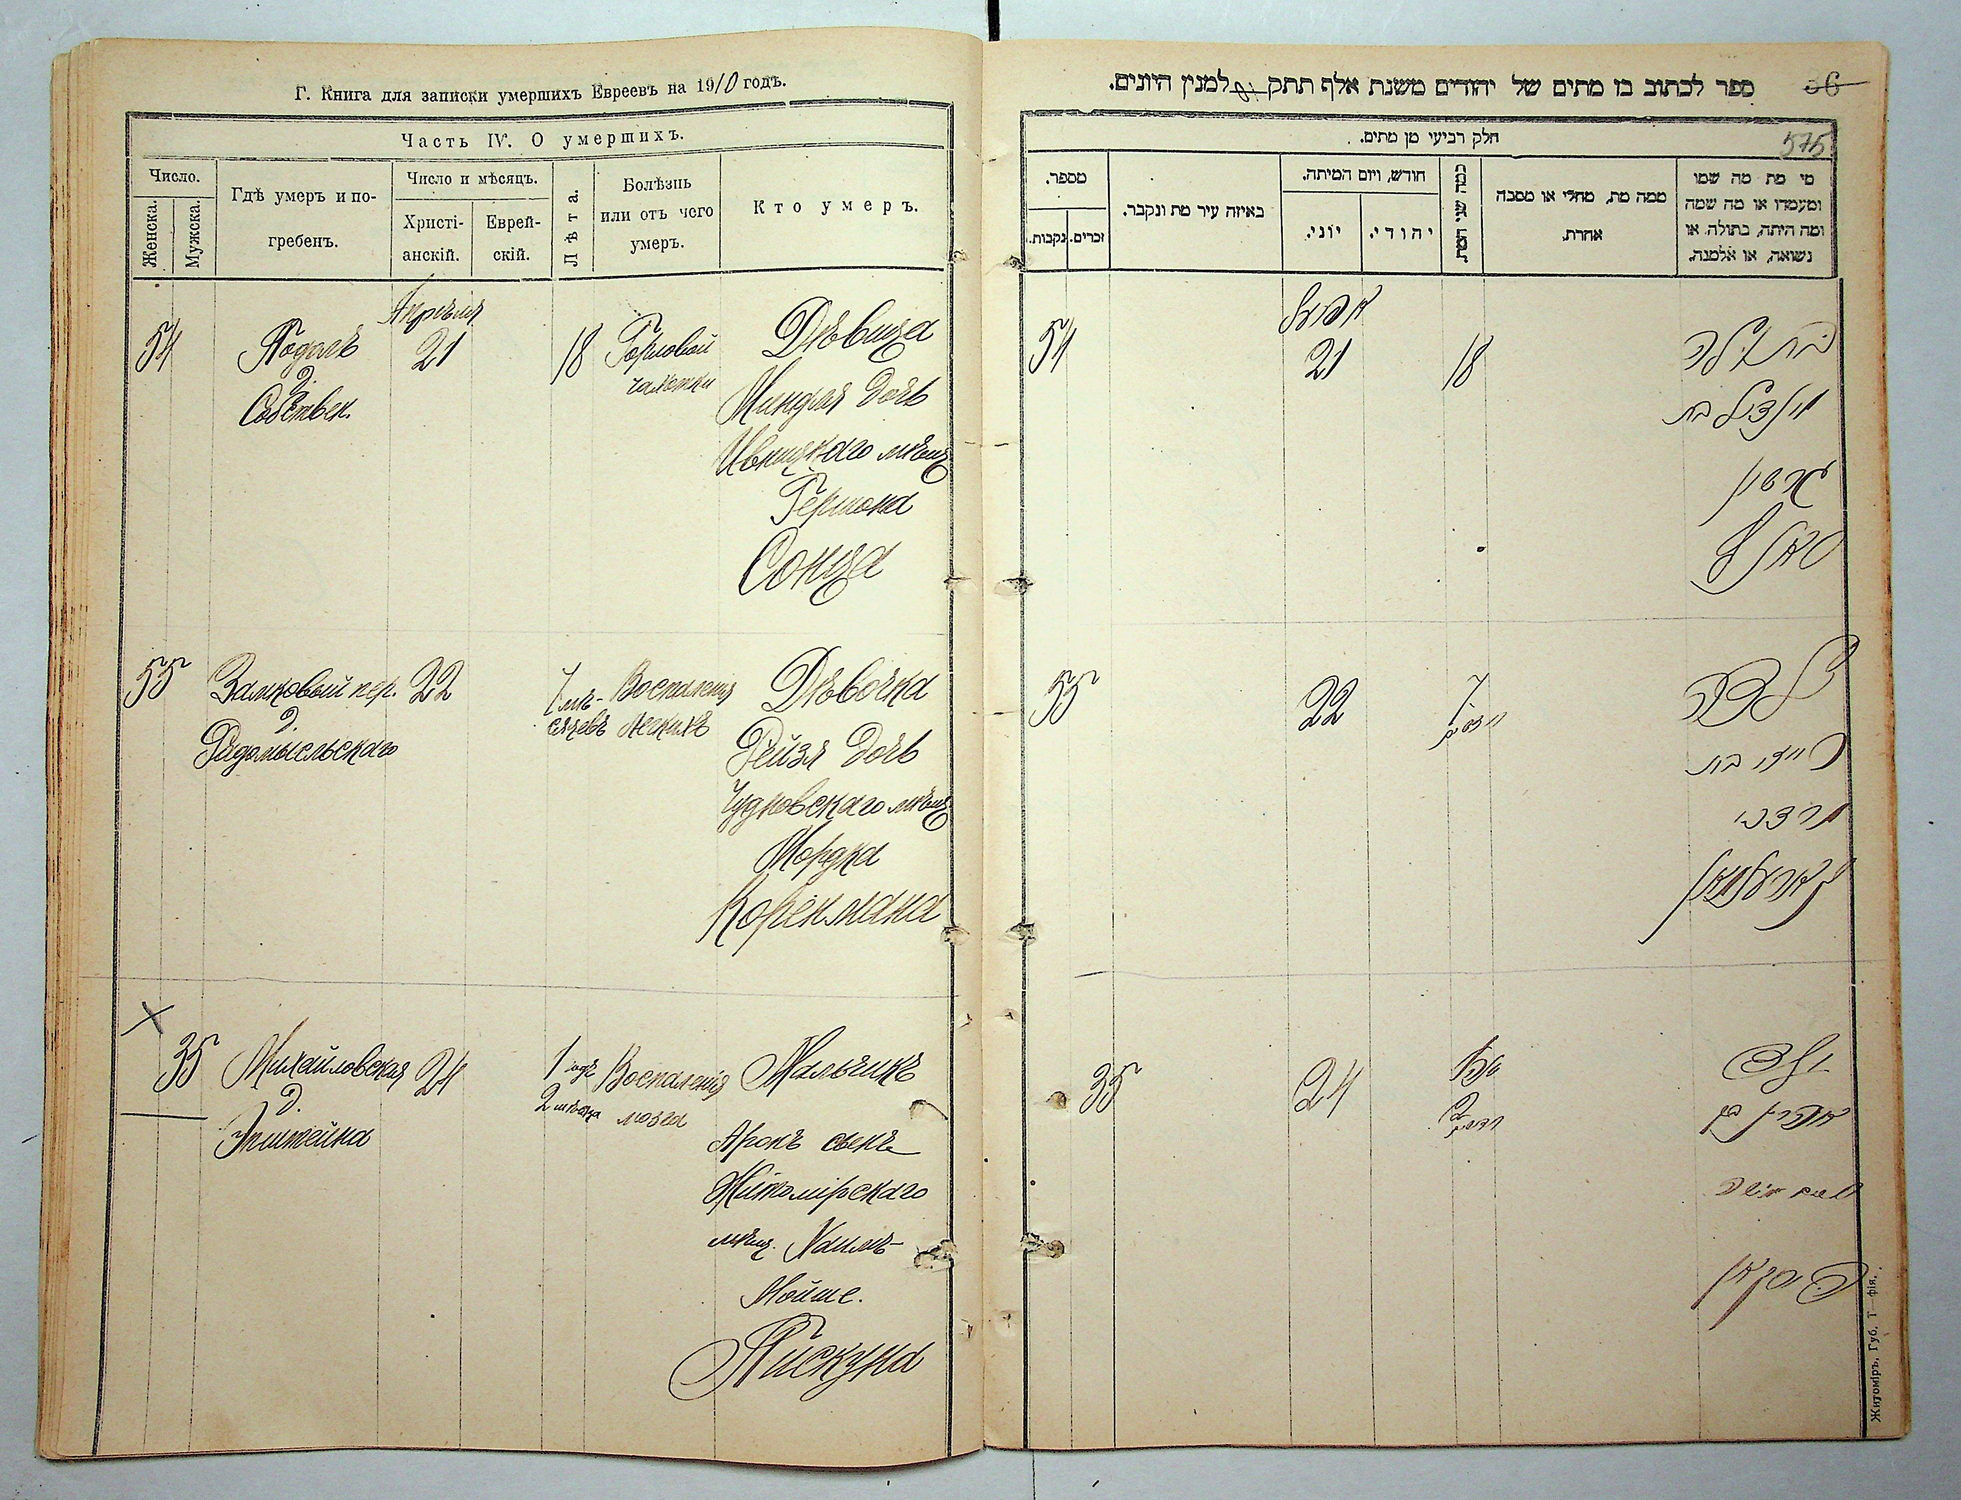 Г. Книга для записки умершихъ Евреевъ на 1910 годъ.
Часть IV. О умершихъ.
Число.
Женска.
Мужска.
Гдѣ умеръ и по-
гребенъ.
Число и мѣсяцъ.
Христі-
анскій.
Еврей-
скій.
Лѣта.
Болѣзнь
или отъ чего
умеръ.
Кто умеръ.
54
Подолъ
д.
Собствен.
Апрѣля
21
18
Горловой
чахотки
Дѣвица
Миндля дочь
Ивницкаго мѣщ
Гершона
Сонца
55
Замковый пер.
д.
Радомысльскаго
22
7 мѣ-
сяцевъ
Воспаленія
легкихъ
Дѣвочка
Рейзя дочь
Чудновскаго мѣщ
Мордка
Коренмана
35
Михайловская
д.
Эпштейна
24
1 годъ
2 мѣсяца
Воспаленія
мозга
Мальчикъ
Аронъ сынъ
Житомірскаго
мѣщ. Хаимъ-
Мойше.
Пискуна
ספר לכתוב בו מתים של יהודים משנת אלף תתק למנין היונים.
36
575
חלק רביעי מן מתים.
מספר.
נקבות.
זכרים.
באיזה עיר מת ונקבר.
חודש, ויום המיתה.
יוני.
יהודי.
כמה שני המת.
ממה מת, מחלי או מסבה
אחרת.
מי מת מה שמו
ומעמדו או מה שמה
ומה היתה, בתולה או
נשואה, או אלמנה.
54
אפריל
21
18
בתולה
מינדיל בת
גרשון
55
22
7
ילדה
רייזי בת
מרדכי
קארענמאן
35
24
שנה
2
ילד
אהרן בן
חיים מושה
פיסקאן
Житоміръ, Губ. Т—фія.